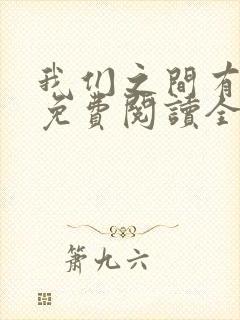 我们之间有
免費閱讀全
萧九六